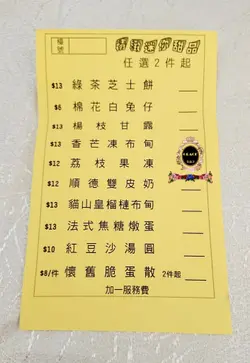 檯號
任選2件起
$13 綠茶芝士餅
$8 棉花白兔仔
$13 楊枝甘露
$13 香芒凍布甸
$12 荔枝果凍
$12 順德雙皮奶
$13 貓山皇榴槤布甸
$13 法式焦糖燉蛋
$10 紅豆沙湯圓
$8/件 懷舊脆蛋散 2件起
加一服務費